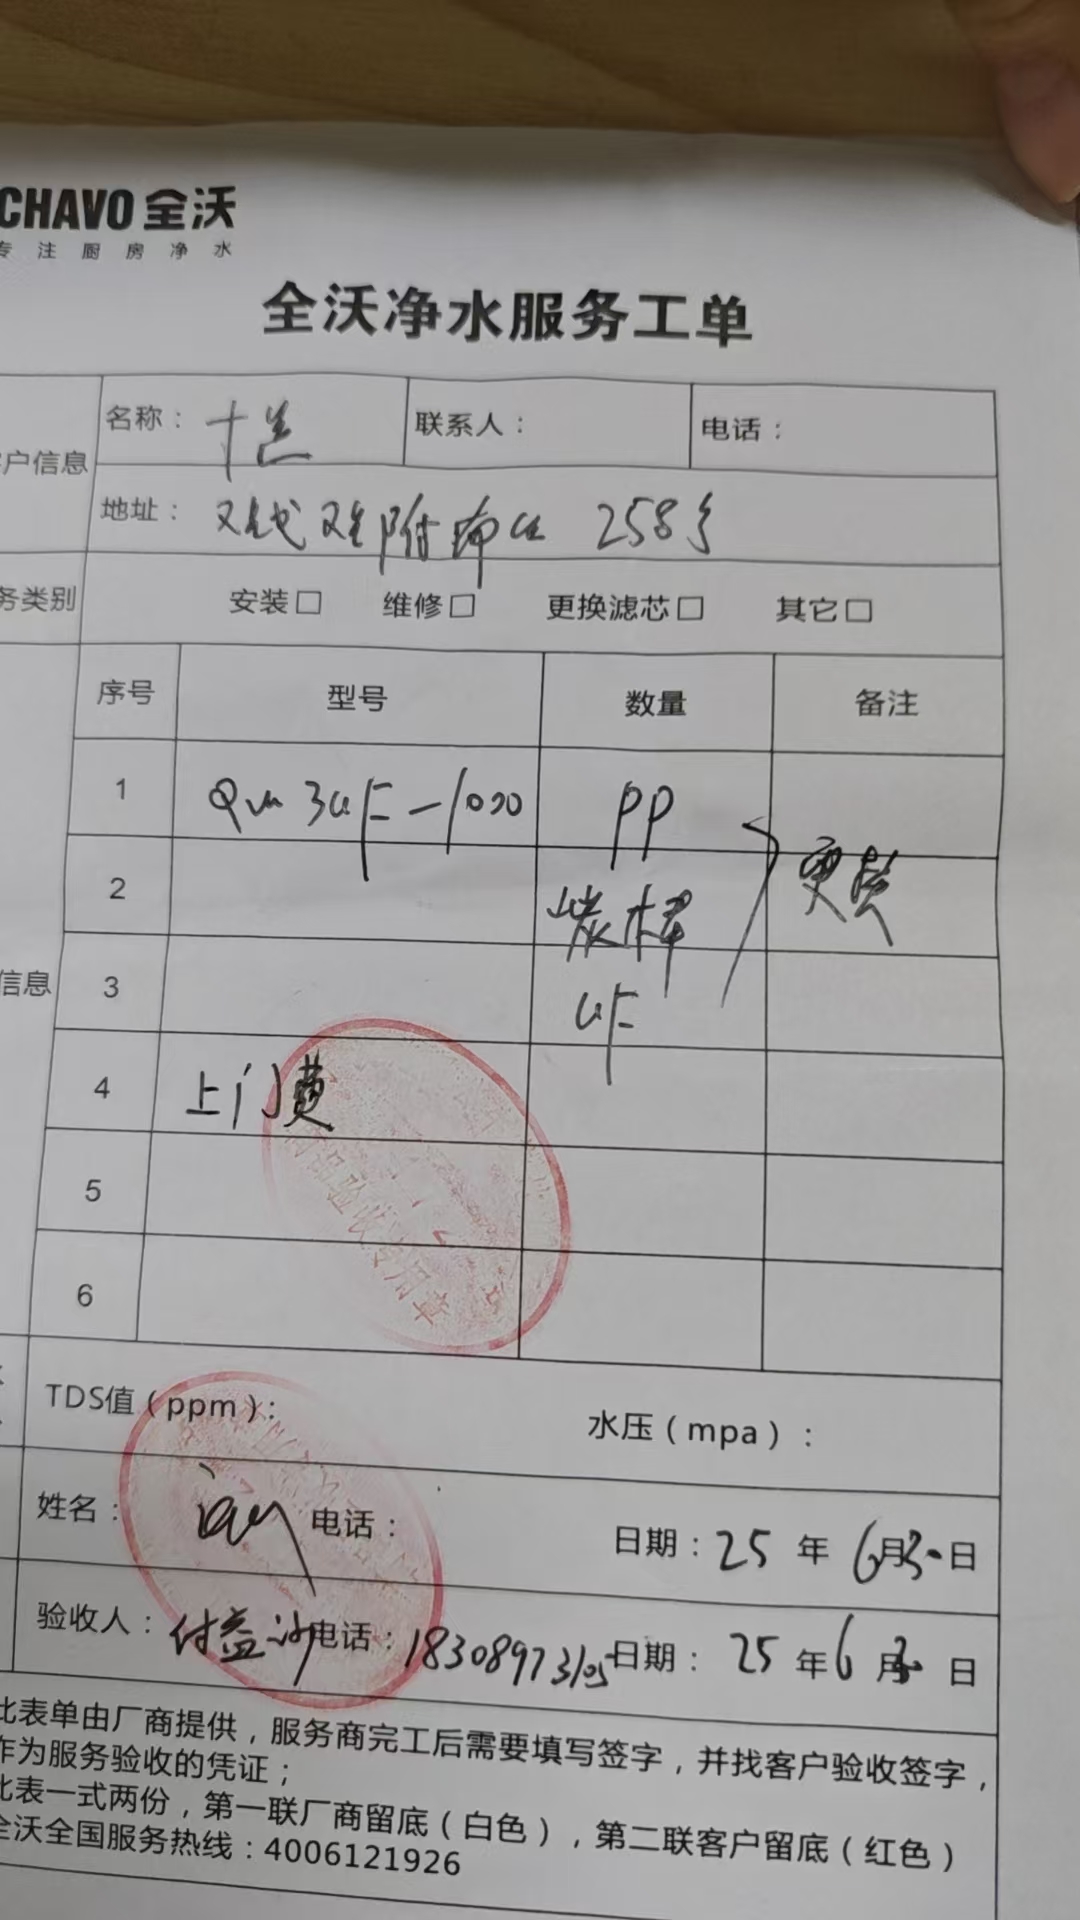 CHAVO 全沃
专注厨房净水
全沃净水服务工单
户信息
名称：
联系人：
电话：
地址： 258号
务类别
安装□ 维修□ 更换滤芯□ 其它□
序号 型号 数量 备注
1 3UF-1000 PP
更换
2 炭棒
信息
3 UF
4 上门费
5
6
验收专用章
TDS值（ppm）：
水压（mpa）：
姓名： 电话： 日期：25年6月30日
验收人： 付益 电话：18308973105 日期：25年6月30日
此表单由厂商提供，服务商完工后需要填写签字，并找客户验收签字，
作为服务验收的凭证；
此表一式两份，第一联厂商留底（白色），第二联客户留底（红色）
全沃全国服务热线：4006121926